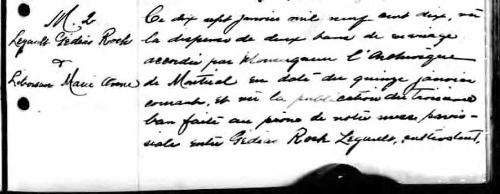 M. 2
Legault Gédéas Roch
&
Marie Anne
Ce dix sept janvier mil neuf cent dix, vu
la dispense de deux bans de mariage
accordée par Monseigneur l'Archevêque
de Montréal en date du quinze janvier
courant, et vu la publication du troisième
ban faite au prône de notre messe parois-
siale entre Gédéas Roch Legault,